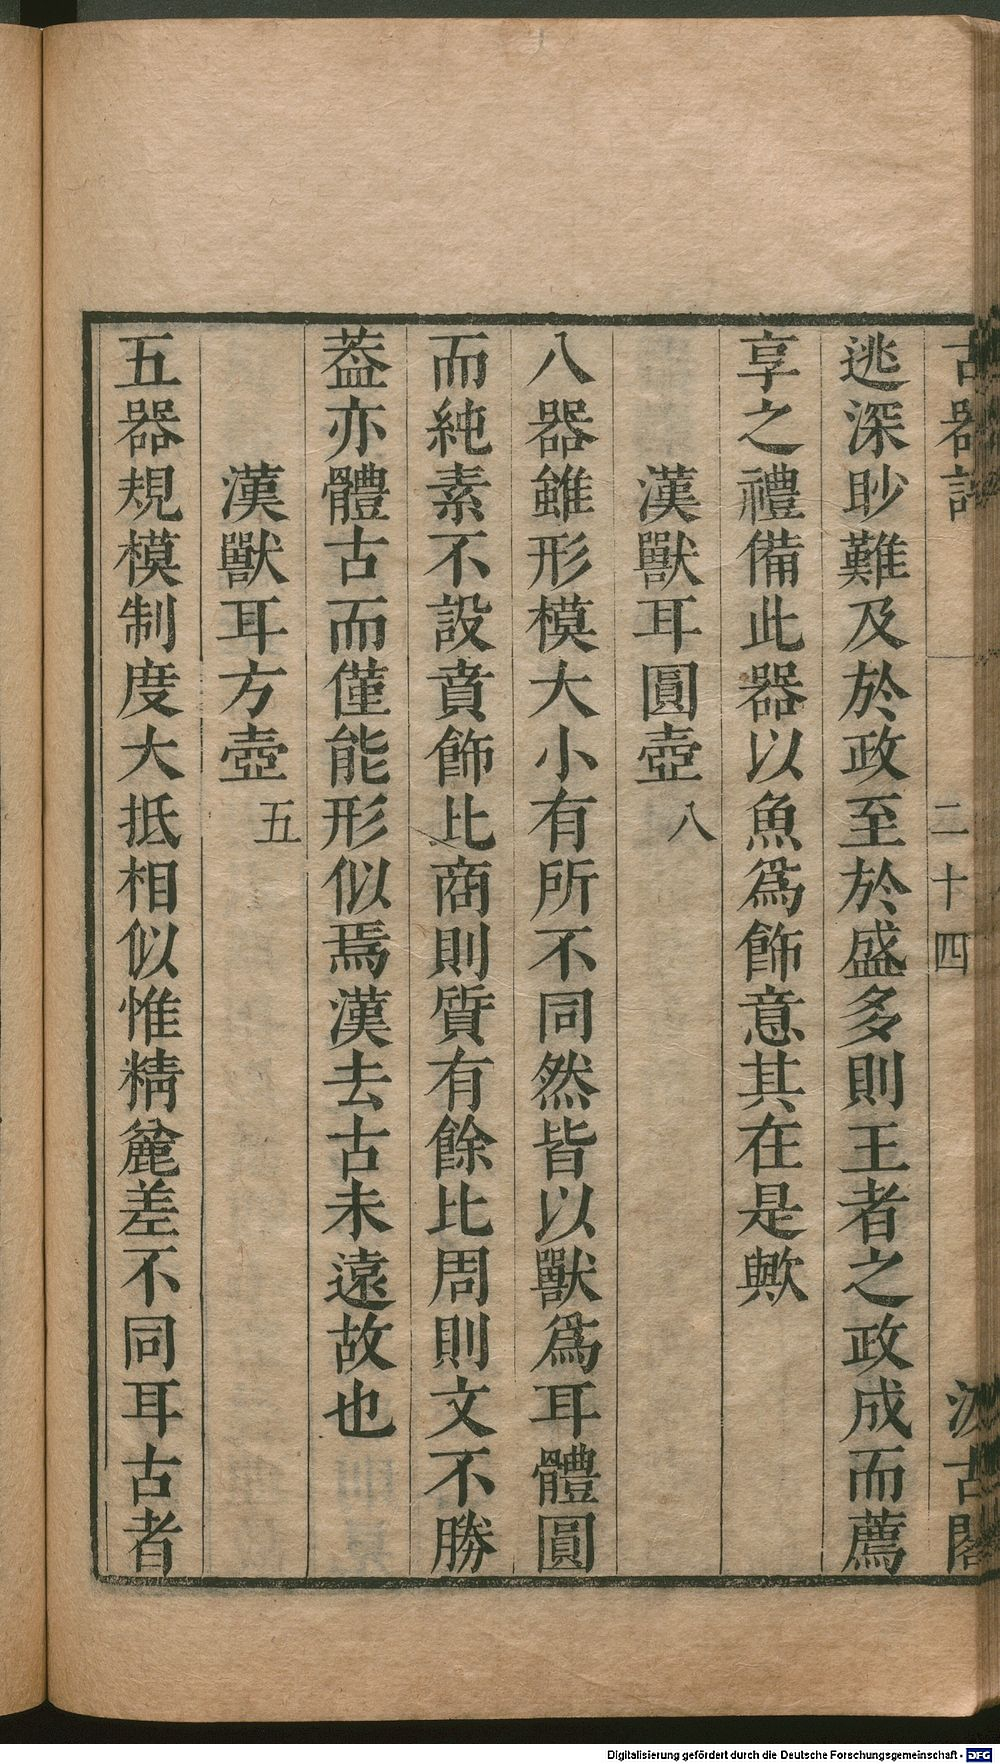 古器記 二十四 汲古閣
逃深眇難及於政至於盛多則王者之政成而薦
享之禮備此器以魚爲飾意其在是歟
漢獸耳圓壺 八
八器雖形模大小有所不同然皆以獸爲耳體圓
而純素不設賁飾比商則質有餘比周則文不勝
葢亦體古而僅能形似焉漢去古未遠故也
漢獸耳方壺 五
五器規模制度大抵相似惟精麄差不同耳古者
Digitalisierung gefördert durch die Deutsche Forschungsgemeinschaft - DFG